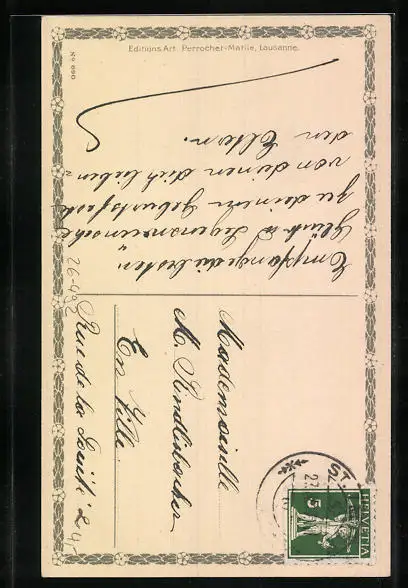 Editions Art. Perrochet-Matile, Lausanne.
No 690
Empfange die besten
Glück- & Segenswünsche
zu deinem Geburtsfeste
von deinen dich lieben-
den Eltern.
Mademoiselle
M. Rindlisbacher
En Ville.
Rue de la
26.492
ST.
5
HELVETIA